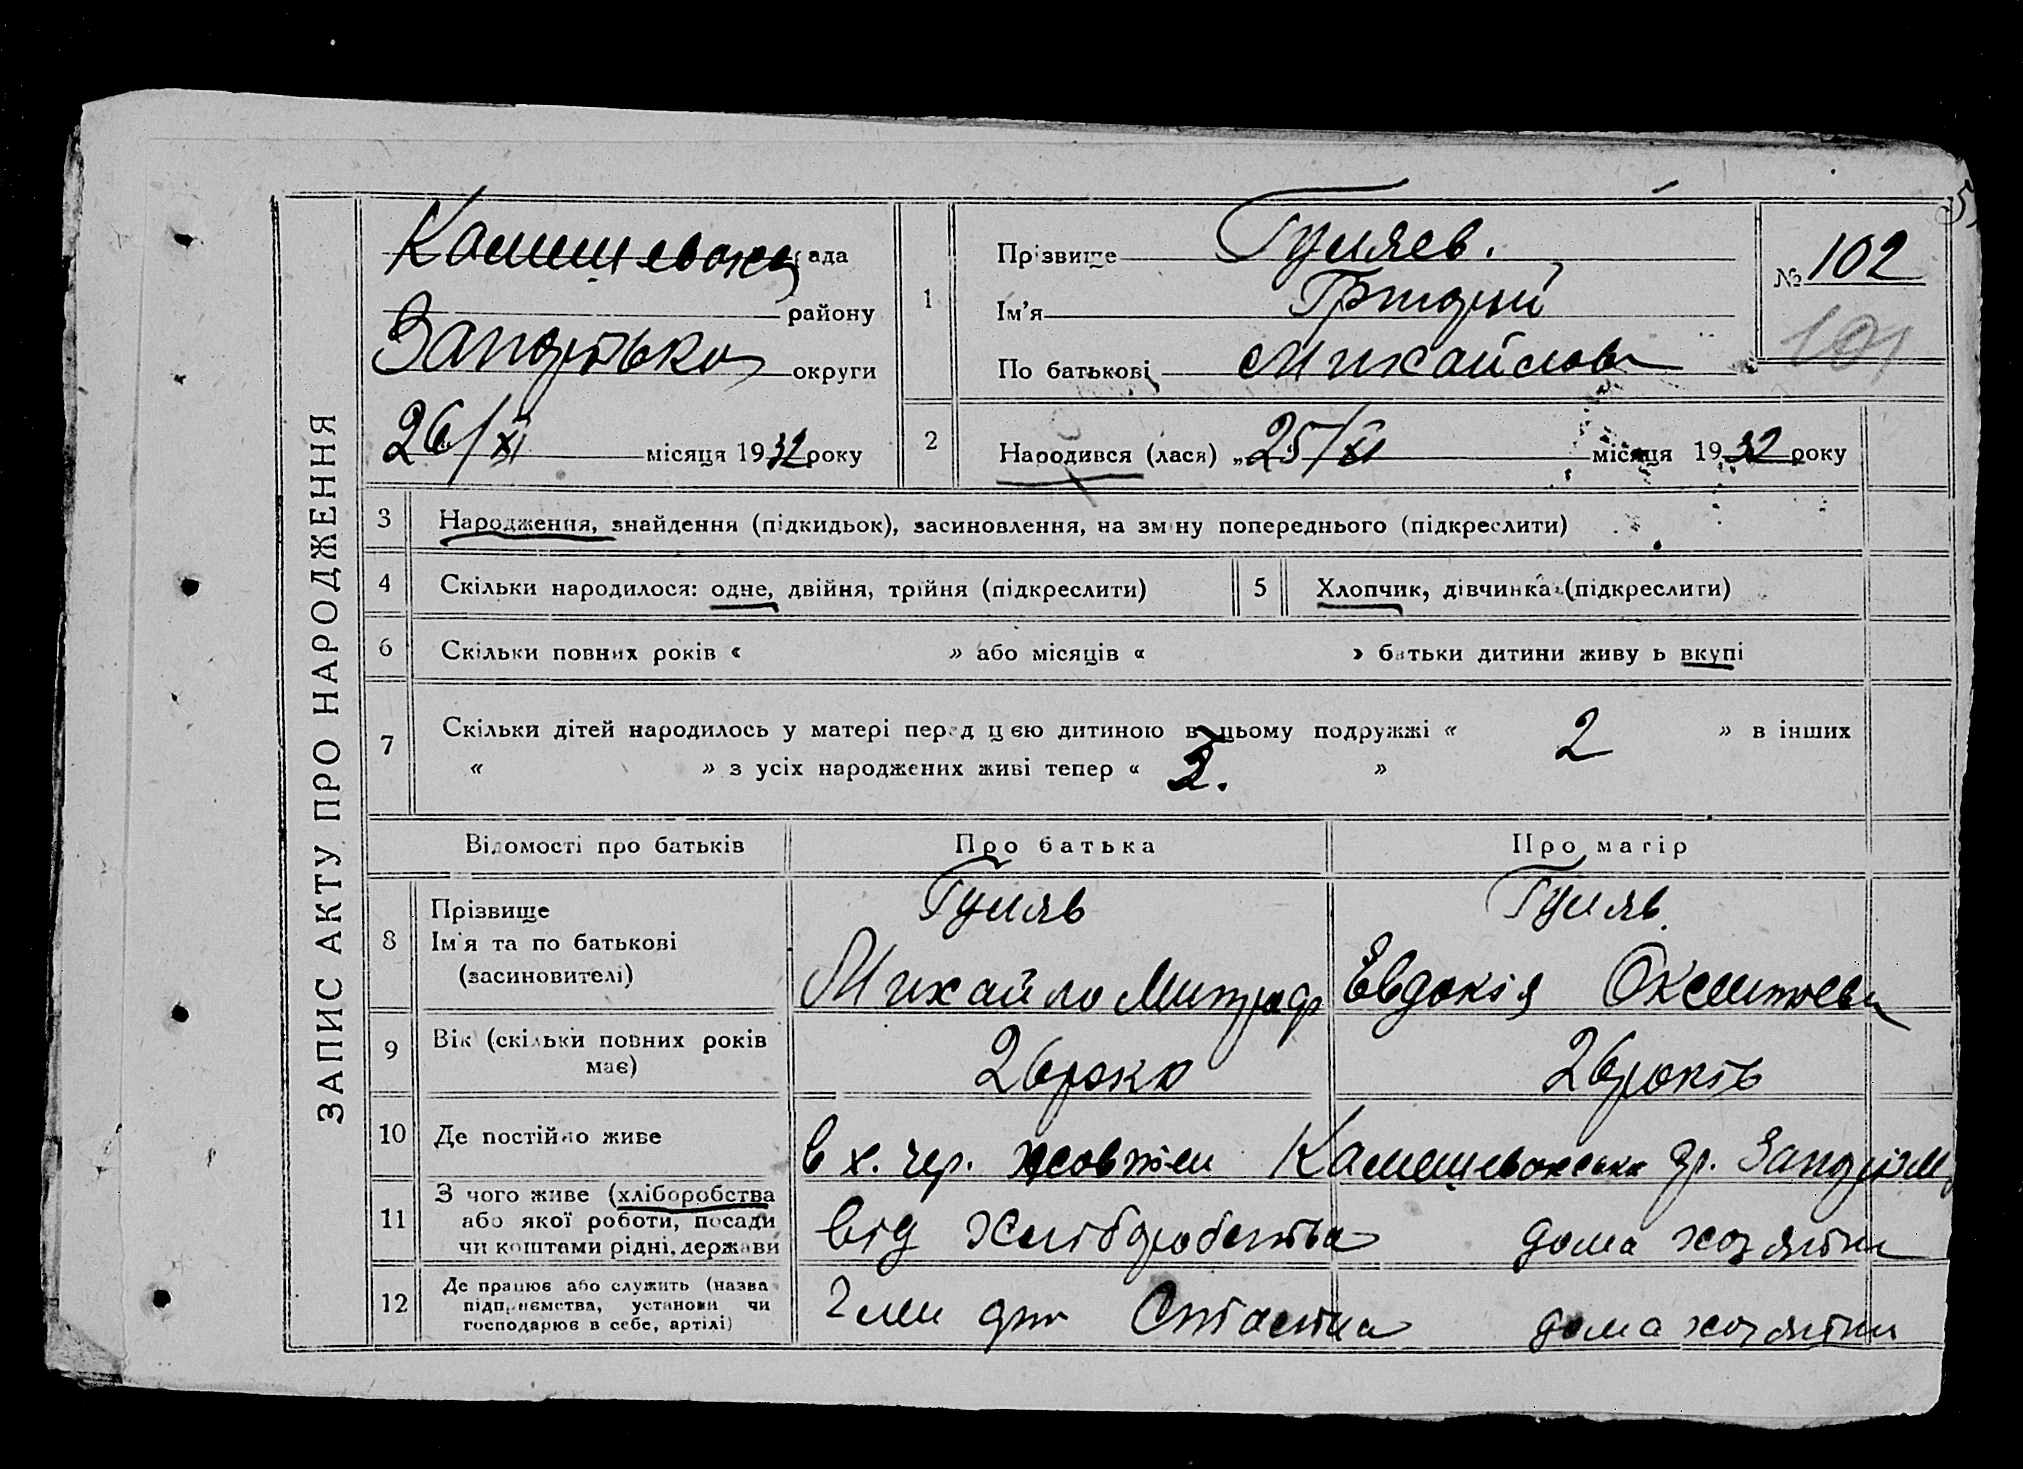 ЗАПИС АКТУ ПРО НАРОДЖЕННЯ
рада
району
округи
26/XI місяця 1932 року
1
Прізвище Гуляев.
Ім'я Григорий
По батькові Михайлов
№ 102
101
2
Народився (лася) „25/XI місяця 1932 року
3 Народження, знайдення (підкидьок), засиновлення, на зміну попереднього (підкреслити)
4 Скільки народилося: одне, двійня, трійня (підкреслити)
5 Хлопчик, дівчинка (підкреслити)
6 Скільки повних років « » або місяців « » батьки дитини живуть вкупі
7 Скільки дітей народилось у матері перед цією дитиною в цьому подружжі « 2 » в інших
« » з усіх народжених живі тепер « 2. »
Відомості про батьків Про батька Про матір
8 Прізвище Гуляв Гуляв
Ім'я та по батькові Михайло Митроф Евдокія
(засиновителі)
9 Вік (скільки повних років має) 26 року 26 років
10 Де постійно живе в х. чер. жовтен
11 З чого живе (хліборобства або якої роботи, посади чи коштами рідні, держави від хліборобства дома хозяйки
12 Де працює або служить (назва підприємства, установи чи господарює в себе, артілі) дома хозяйки